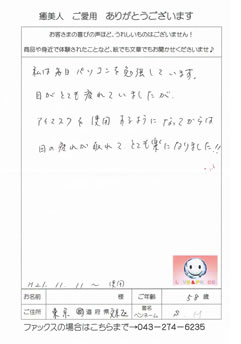 癒美人　ご愛用　ありがとうございます
お客さまの喜びの声ほど、うれしいものはございません！
商品や身近で体験されたことなど、絵でも文章でもお聞かせくださいませ♪
私は毎日パソコンを勉強しています。
目がとても疲れていましたが、
アイマスクを使用するようになってからは
目の疲れが取れて、とても楽になりました!!
H21.11.11〜使用
お名前　様　ご年齢　58歳
ご住所　東京　都道府県　区　匿名ペンネーム
ファックスの場合はこちらまで→043-274-6235